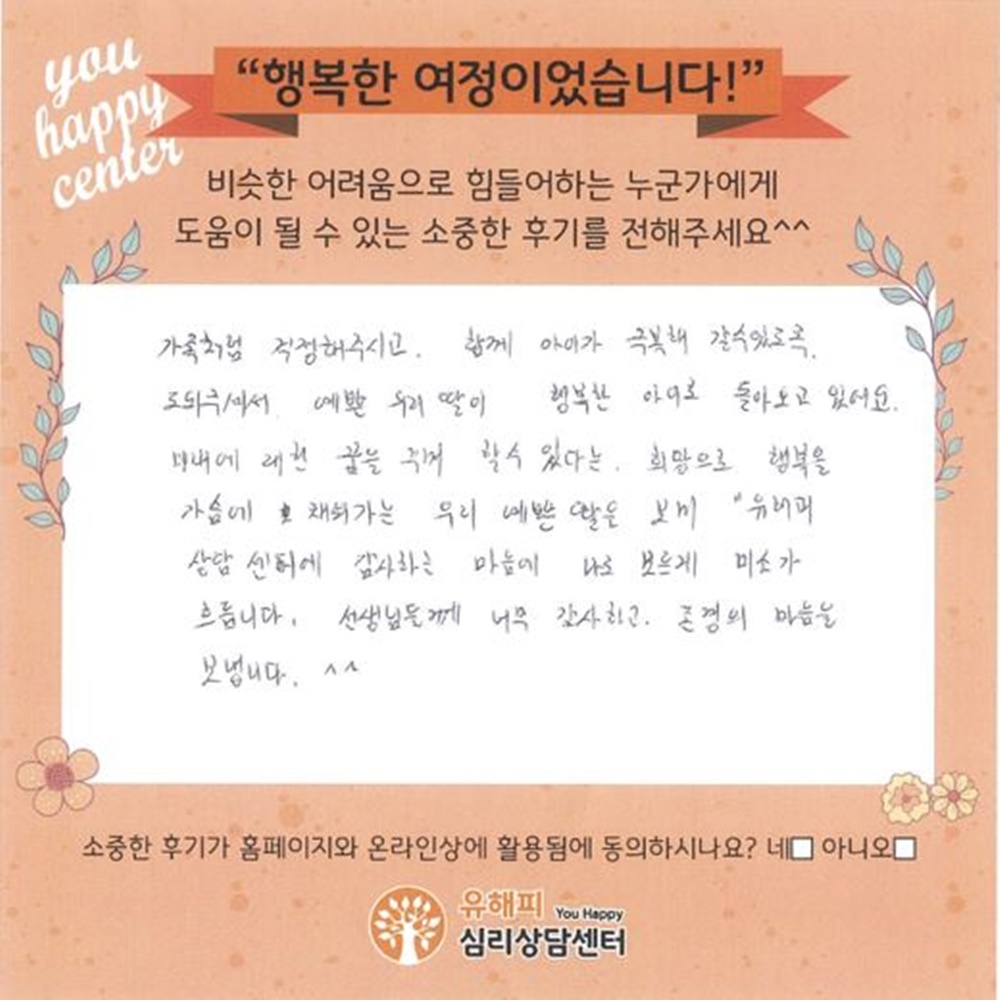 you
happy
center
“행복한 여정이었습니다!”
비슷한 어려움으로 힘들어하는 누군가에게
도움이 될 수 있는 소중한 후기를 전해주세요^^
가족처럼 걱정해주시고. 함께 아이가 극복해 갈수있도록.
도와주셔서. 예쁜 우리 딸이 행복한 아이로 돌아오고 있어요.
미래에 대한 꿈을 꾸게 할수 있다는. 희망으로 행복을
가슴에 채워가는 우리 예쁜 딸을 보며 "유해피
상담 센터에 감사하는 마음에 나도 모르게 미소가
흐릅니다. 선생님들께 너무 감사하고. 존경의 마음을
보냅니다. ^^
소중한 후기가 홈페이지와 온라인상에 활용됨에 동의하시나요? 네□ 아니오□
유해피 You Happy
심리상담센터